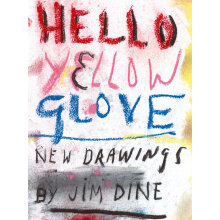 HELLO
YELLOW
GLOVE
NEW DRAWINGS
BY JIM DINE